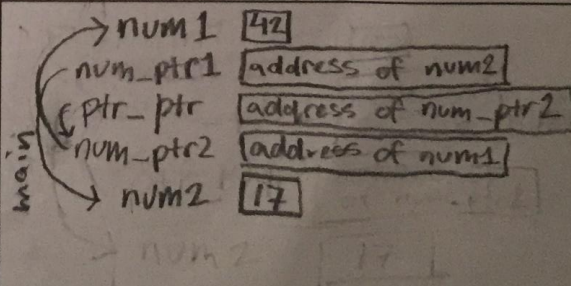 num1 42
num_ptr1 address of num2
ptr_ptr address of num_ptr2
num_ptr2 address of num1
main
num2 17
num2 17